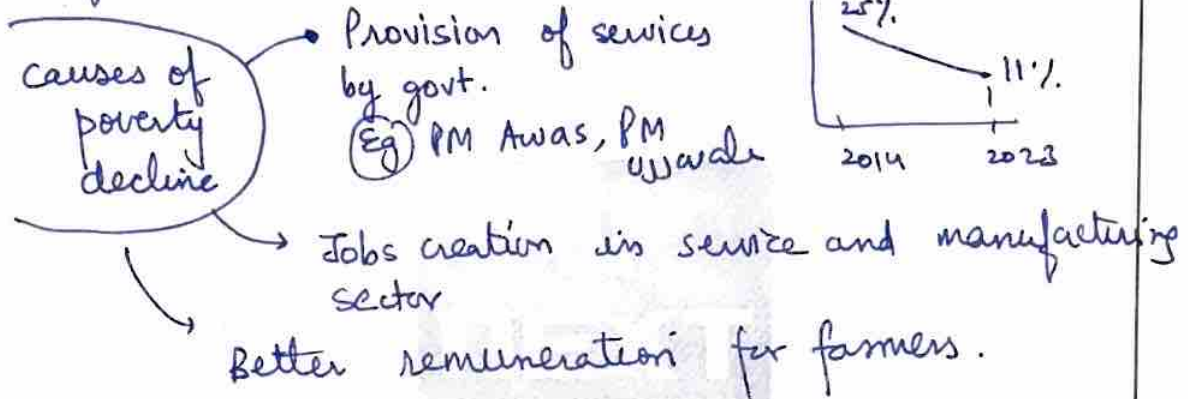 causes of
poverty
decline
Provision of services
by govt.
Eg PM Awas, PM
Ujjwala
25%.
11%.
2014 2023
Jobs creation in service and manufacturing
sector
Better remuneration for farmers.